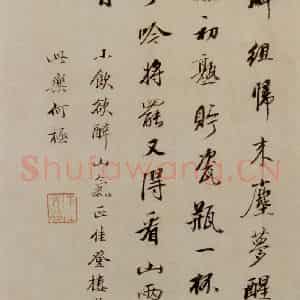 解组归来尘梦醒
初熟贮瓷瓶一杯
吟将罢又得看山两
小饮欲醉山气正佳登楼
此乐何极
Shufawang.CN